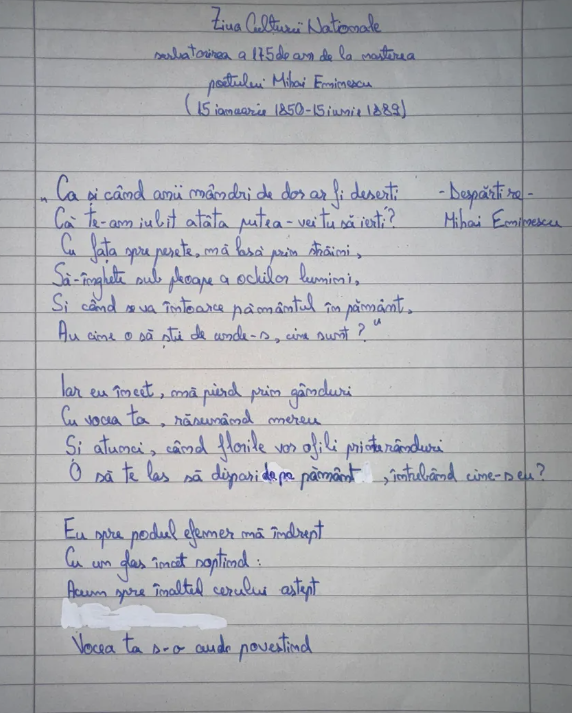 Ziua Culturii Nationale
sarbatorirea a 175 de ani de la nasterea
poetului Mihai Eminescu
(15 ianuarie 1850-15 iunie 1889)
„Ca și când anii mândri de dor ar fi deserti -Despărtire-
Că te-am iubit atâta putea-vei tu să ierti? Mihai Eminescu
Cu fața spre perete, mă lasă prin străini,
Să-nghețe sub pleoape a ochilor lumini,
Si când se va întoarce pământul în pământ,
Au cine o să știe de unde-s, cine sunt?"
Iar eu încet, mă pierd prin gânduri
Cu vocea ta, răsunând mereu
Si atunci, când florile vor ofili printre rânduri
O să te las să dispari de pe pământ, întrebând cine-s eu?
Eu spre podul efemer mă îndrept
Cu un glas încet soptind:
Acum spre înaltul cerului astept
Vocea ta s-o aud povestind